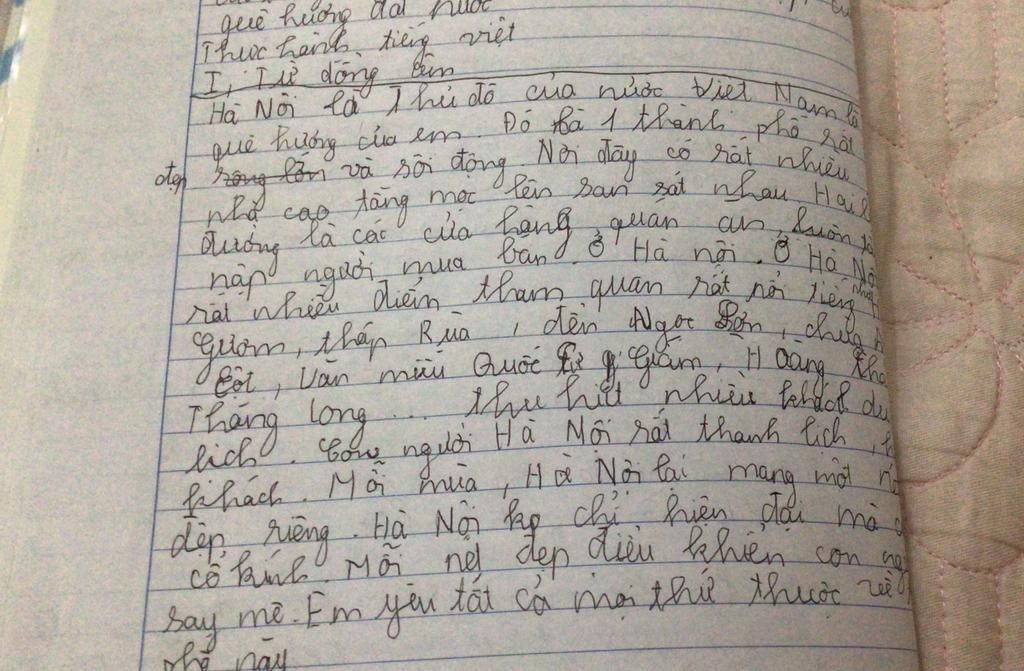 quê hương đất nước
Thực hành tiếng việt
I, Từ đồng âm
Hà Nội là Thủ đô của nước Việt Nam là
quê hương của em. Đó là 1 thành phố rất
đẹp rộng lớn và sôi động. Nơi đây có rất nhiều
nhà cao tầng mọc lên san sát nhau Hai
đường là các cửa hàng quán ăn, luôn
nập người mua bán. Ở Hà nội. Ở Hà Nội
rất nhiều điểm tham quan rất nổi tiếng như
Gươm, tháp Rùa, đền Ngọc Sơn, chùa
Cột, Văn miếu Quốc Tử Giám, Hoàng
Thăng long... thu hút nhiều khách du
lịch. Con người Hà Nội rất thanh lịch,
khách. Mỗi mùa, Hà Nội lại mang một
đẹp riêng. Hà Nội ko chỉ hiện đại mà
cổ kính. Mỗi nét đẹp điều khiến con
say mê. Em yêu tất cả mọi thứ thuộc về
phố này